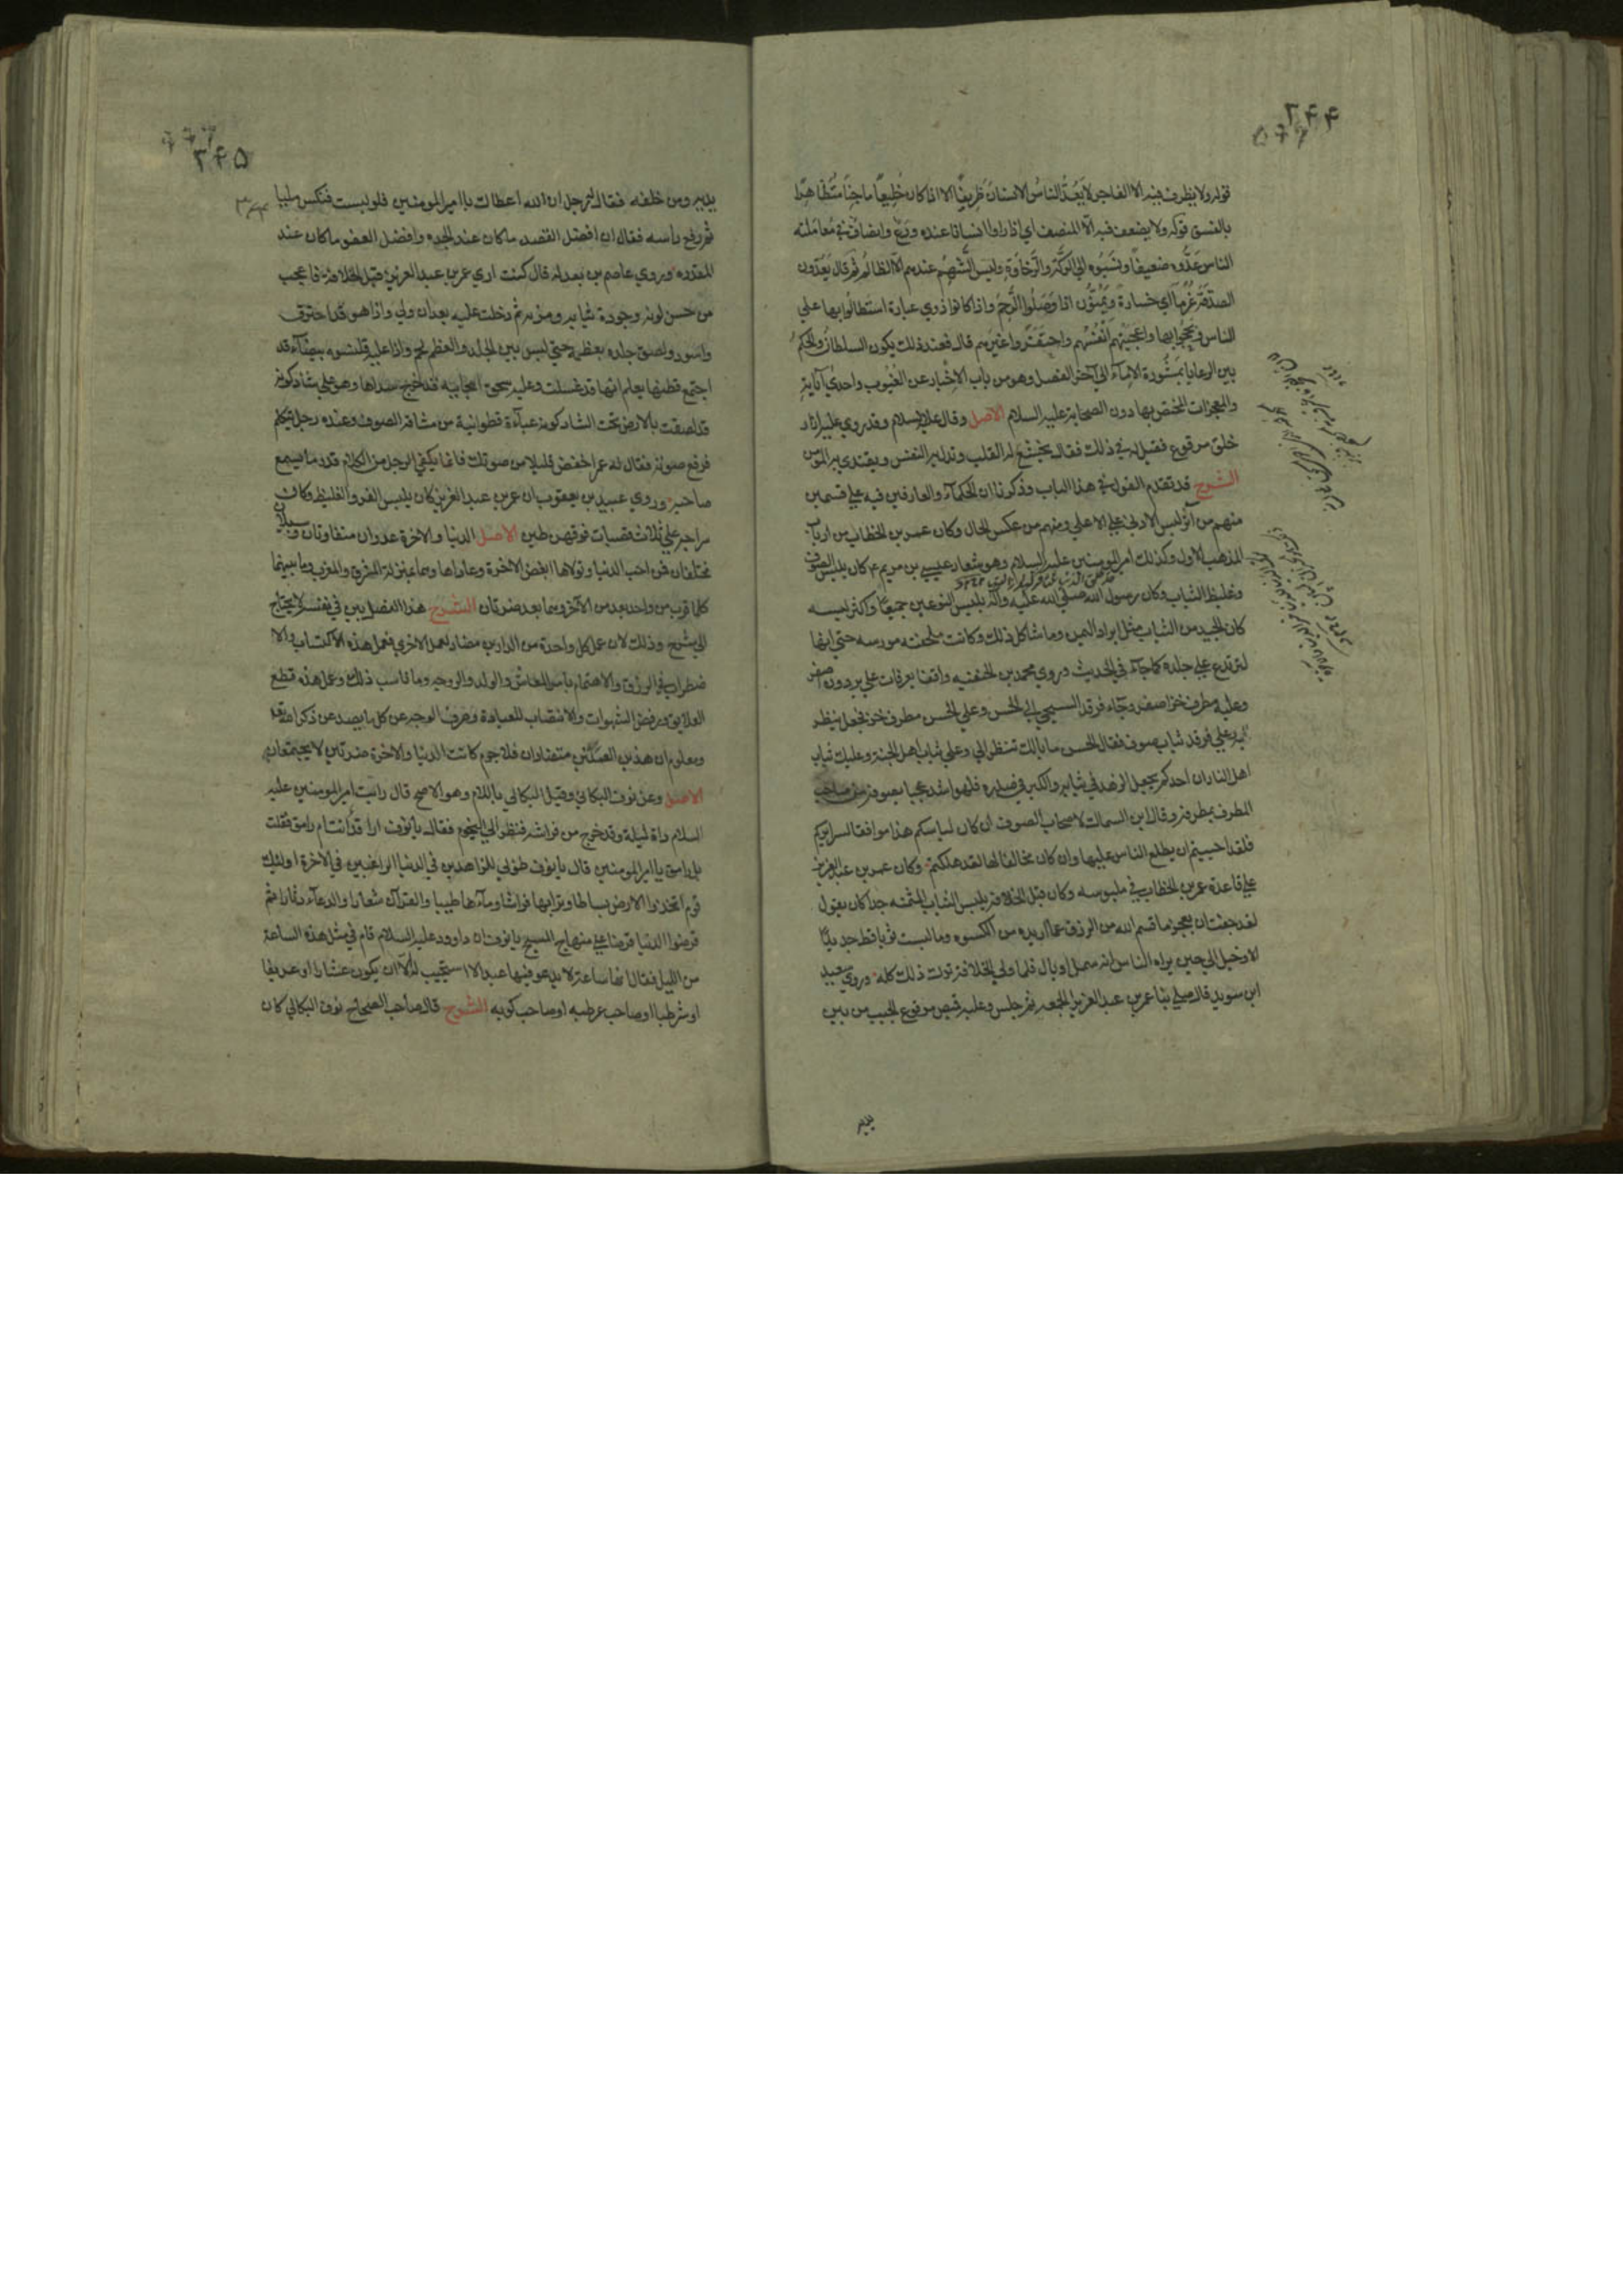 ٢۴۴
قوله ولا يظرف فيه الا الفاجر لا يَعُدُّ الناسُ الانسانَ ظريفًا الا اذا كان خليعًا ماجنًا متظاهرًا
بالفسق قوله ولا يضعف فيه الّا المنصف اي اذا راوا انسانا عنده ورع وانصاف في معاملته
الناس عَدُّوه ضعيفًا ونَسَبُوه الي الركّة والرّخاوة وليس الشهم عندهم الّا الظالم ثم قال يعدّون
الصدقة غُرمًا اي خسارة ويَمُنّون اذا وَصَلُوا الرَّحِم واذا كانوا ذوي عبادة استطالُوا بها علي
الناس وتبجّحوا بها واعجبتهم انفسُهم واحتقَرُوا غيرهم قال فعند ذلك يكون السلطان والحكم
بين الرعايا بمشورة الاماء الي آخر الفصل وهو من باب الاخبار عن الغُيُوب واحدي آياته
والمعجزات المختص بها دون الصحابة عليه السلام الاصل وقال عليه السلام وقد روي عليه ازار
خلق مرقوع فقيل له في ذلك فقال يخشع له القلب وتذل به النفس ويقتدي به المومنون
الشرح قد تقدم القول في هذا الباب وذكرنا ان الحكمآء والعارفين فيه علي قسمين
منهم من آثر لبس الادني علي الاعلي ومنهم من عكس الحال وكان عمر بن الخطاب من ارباب
المذهب الاول وكذلك امير المومنين عليه السلام وهو شعار عيسي بن مريم ع كان يلبس الصوف
وغليظ الثياب وكان رسول الله صلي الله عليه وآله يلبس النوعين جميعًا واكثر لبسه
كان الجيد من الثياب مثل ابراد اليمن وما شاكل ذلك وكانت ملحفته مورسه حتي انها
لتردع علي جلده كما جآء في الحديث وروي محمد بن الحنفيه واقفا بعرفات علي برذون اصفر
وعليه مطرف خز اصفر وجآء فرقد السبجي الي الحسن وعلي الحسن مطرف خز فجعل ينظر
اليه وعلي فرقد ثياب صوف فقال الحسن ما بالك تنظر الي وعلي ثياب اهل الجنة وعليك ثياب
اهل النار ان احدكم يجعل الزهد في ثيابه والكبر في صدره فلهو اشد عجبا بصوفه من صاحب
المطرف بمطرفه وقال ابن السماك لاصحاب الصوف ان كان لباسكم هذا موافقا لسرايركم
فلقد احببتم ان يطلع الناس عليها وان كان مخالفا لها لقد هلكتم وكان عمر بن عبد العزيز
علي قاعدة عمر بن الخطاب في ملبوسه وكان قبل الخلافة يلبس الثياب المثمنه جدا كان يقول
لقد خفت ان يعجز ما قسم الله من الرزق عما اريده من الكسوه وما لبست ثوبا قط جديدًا
الا وخيل الي حين يراه الناس انه سمل او بال فلما ولي الخلافة ترك ذلك كله وروي سعيد
ابن سويد قال صلي بنا عمر بن عبد العزيز الجمعه ثم جلس وعليه قميص مرقوع الجيب من بين
يديه
٢۴۵
يديه ومن خلفه فقال له رجل ان الله اعطاك يا امير المومنين فلو لبست فنكس مليا
ثم رفع راسه فقال ان افضل القصد ما كان عند الجده وافضل العفو ما كان عند
المقدره وروي عاصم بن بعدله قال كنت اري عمر بن عبد العزيز قبل الخلافة فاعجب
من حسن لونه وجودة ثيابه وبزته ثم دخلت عليه بعد ان ولي واذا هو قد احترق
واسود ولصق جلده بعظمه حتي ليس بين الجلد والعظم لحم واذا عليه قلنسوه بيضآء قد
اجتمع قطنها يعلم انها قد غسلت وعليه سحق انبجانيه قد خرج سداها وهو علي شاذكونه
قد لصقت بالارض تحت الشاذكونه عبآءة قطوانية من مشاقة الصوف وعنده رجل يتكلم
فرفع صوته فقال له عمر اخفض قليلا من صوتك فانما يكفي الرجل من الكلام قدر ما يسمع
صاحبه وروي عبيد بن يعقوب ان عمر بن عبد العزيز كان يلبس الفرو الغليظ وكان
سراجه علي ثلاث قصبات فوقهن طين الاصل الدنيا والاخرة عدوان متفاوتان وسبيلان
مختلفان فمن احب الدنيا وتولاها ابغض الاخرة وعاداها وهما بمنزلة المشرق والمغرب وما بينهما
كلما قرب من واحد بعد من الآخر وهما بعد ضرتان الشرح هذا الفصل بين في نفسه لا يحتاج
الي شرح وذلك لان عمل كل واحدة من الدارين مضاد لعمل الاخري فعمل هذه الاكتساب والا
ضطراب في الرزق والاهتمام بامر المعاش والولد والزوجه وما ناسب ذلك وعمل هذه قطع
العلايق ورفض الشهوات والانتصاب للعبادة وصرف الوجه عن كل ما يصد عن ذكر الله تعالي
ومعلوم ان هذين العملين متضادان فلا جرم كانت الدنيا والاخرة ضرتين لا يجتمعان
الاصل وعن نوف البكائي وقيل البكالي باللام وهو الاصح قال رايت امير المومنين عليه
السلام ذات ليلة وقد خرج من فراشه فنظر الي النجوم فقال يا نوف اراقد انت ام رامق فقلت
بل رامق يا امير المومنين قال يا نوف طوبي للزاهدين في الدنيا الراغبين في الاخرة اولئك
قوم اتخذوا الارض بساطا وترابها فراشا ومآءها طيبا والقرآن شعارا والدعآء دثارا ثم
قرضوا الدنيا قرضا علي منهاج المسيح يا نوف ان داوود عليه السلام قام في مثل هذه الساعة
من الليل فقال انها ساعة لا يدعو فيها عبد الا استجيب له الّا ان يكون عشارا او عريفا
او شرطيا او صاحب عرطبه او صاحب كوبه الشرح قال صاحب الصحاح نوف البكالي كان